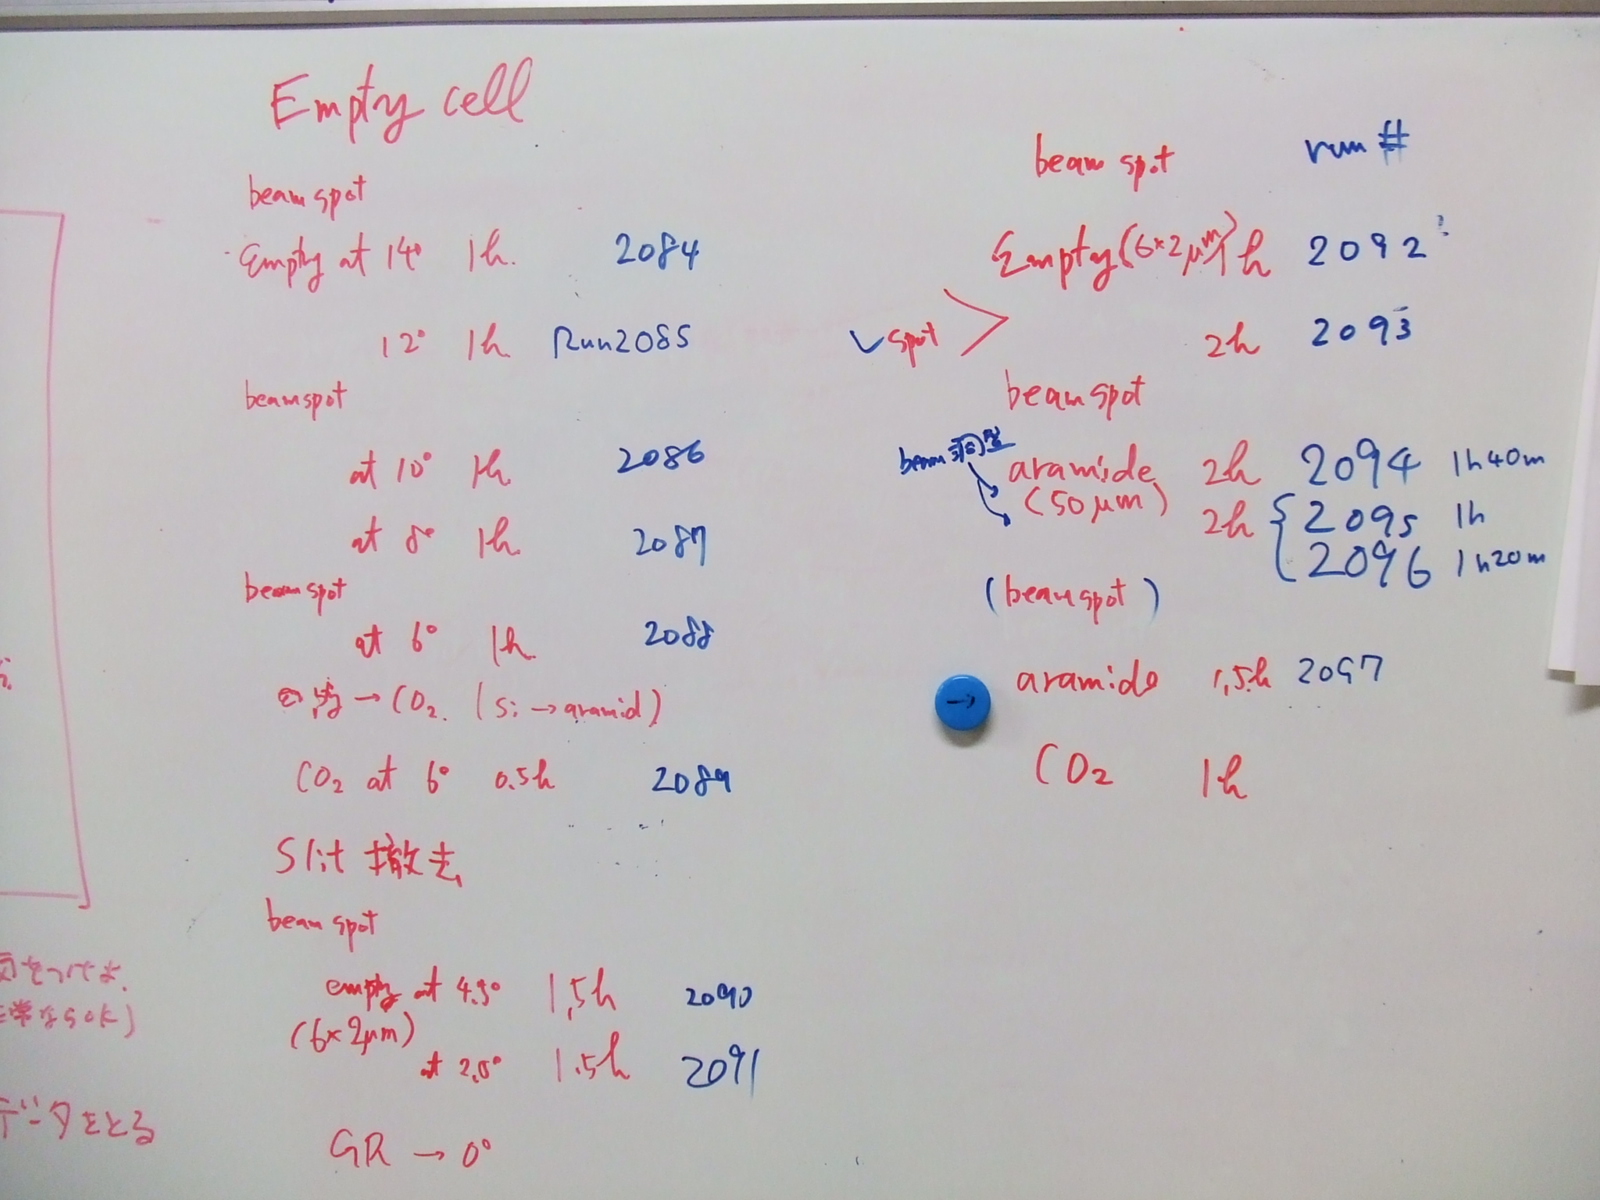 Empty cell
beam spot
Empty at 14° 1h. 2084
12° 1h Run2085
beam spot
at 10° 1h 2086
at 8° 1h 2087
beam spot
at 6° 1h 2088
→ CO2. (Si → aramid)
CO2 at 6° 0.5h 2089
Slit 撤去
beam spot
empty at 4.5° 1.5h 2090
(6×2μm)
at 2.0° 1.5h 2091
GR → 0°
beam spot run #
Empty (6×2μm) 1h 2092
spot
2h 2093
beam spot
beam
aramide 2h 2094 1h40m
(50μm) 2h 2095 1h
2096 1h20m
(beam spot)
→ aramide 1.5h 2097
CO2 1h
データをとる